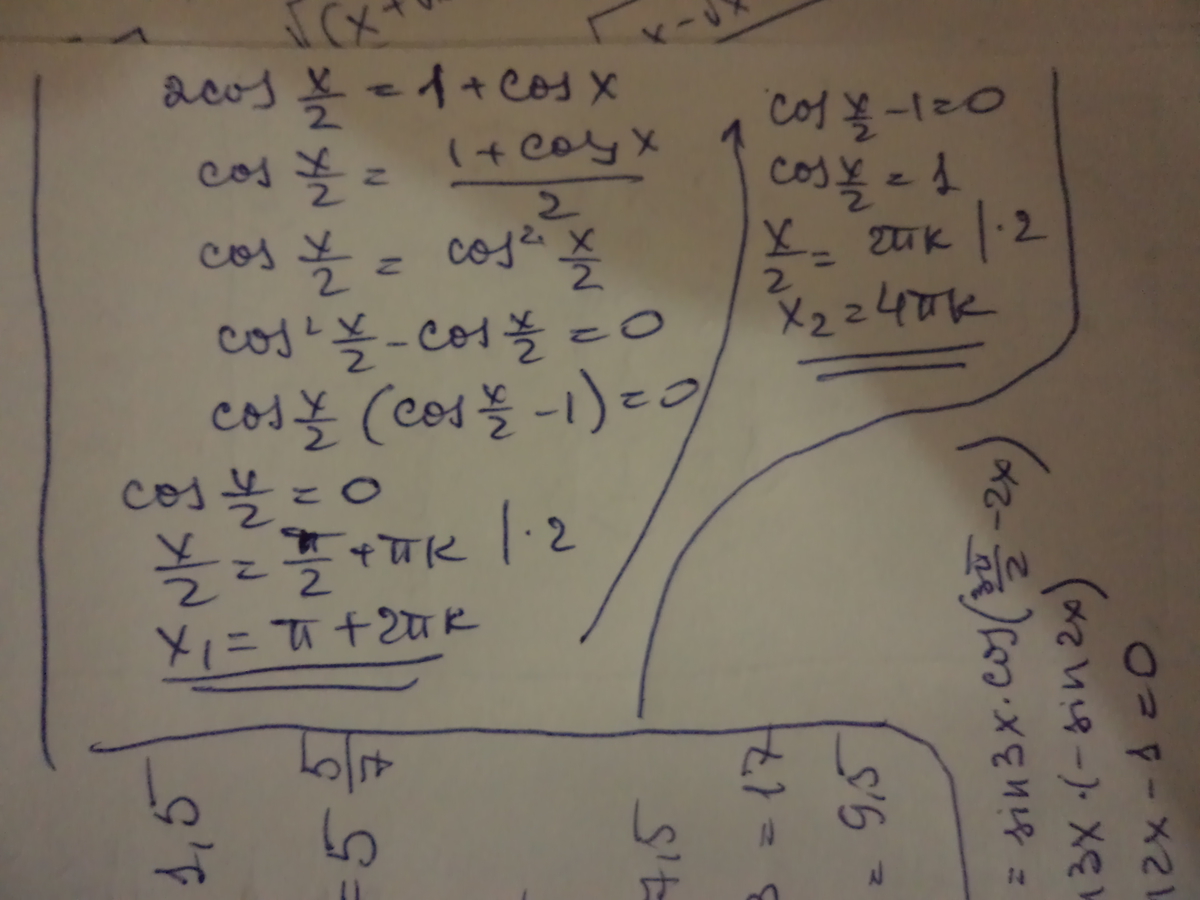 √(x+
√x-√x
2cos x/2 = 1 + cos x
cos x/2 = (1 + cos x)/2
cos x/2 = cos² x/2
cos² x/2 - cos x/2 = 0
cos x/2 (cos x/2 - 1) = 0
cos x/2 = 0
x/2 = π/2 + πk | · 2
x₁ = π + 2πk
cos x/2 - 1 = 0
cos x/2 = 1
x/2 = 2πk | · 2
x₂ = 4πk
1,5
5/7
= 5
7,5
= 17
= 9,5
= sin 3x · cos(3π/2 - 2x)
3x · (- sin 2x)
2x - 1 = 0